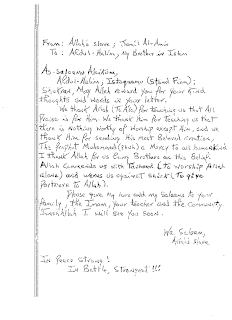 From: Allah's slave, Jamil Al-Amin
To: Abdul-Halim, My Brother in Islam
As-Salaamu Alaikum,
Abdul-Halim, Istaqaamu (Stand Firm);
Shukran, May Allah reward you for your kind
thoughts and words in your letter.
We thank Allah (Ta'Ala) for teaching us that All
Praise is for Him. We thank Him for teaching us that
there is nothing worthy of Worship except Him, and we
thank Him for sending His most Beloved creation,
The Prophet Muhammad (Pbuh) a Mercy to all mankind
I thank Allah for us being Brothers as this Belief.
Allah commands us with Tawheed (to worship Allah
alone) and warns us against Shirk (to give
Partners to Allah).
Please give my love and my Salaams to your
family, the Imam, your teacher and the Community
Inshallah I will see you soon.
Wa Salaam,
Allah's Slave
In Peace Strong!
In Battle, Strongest!!!